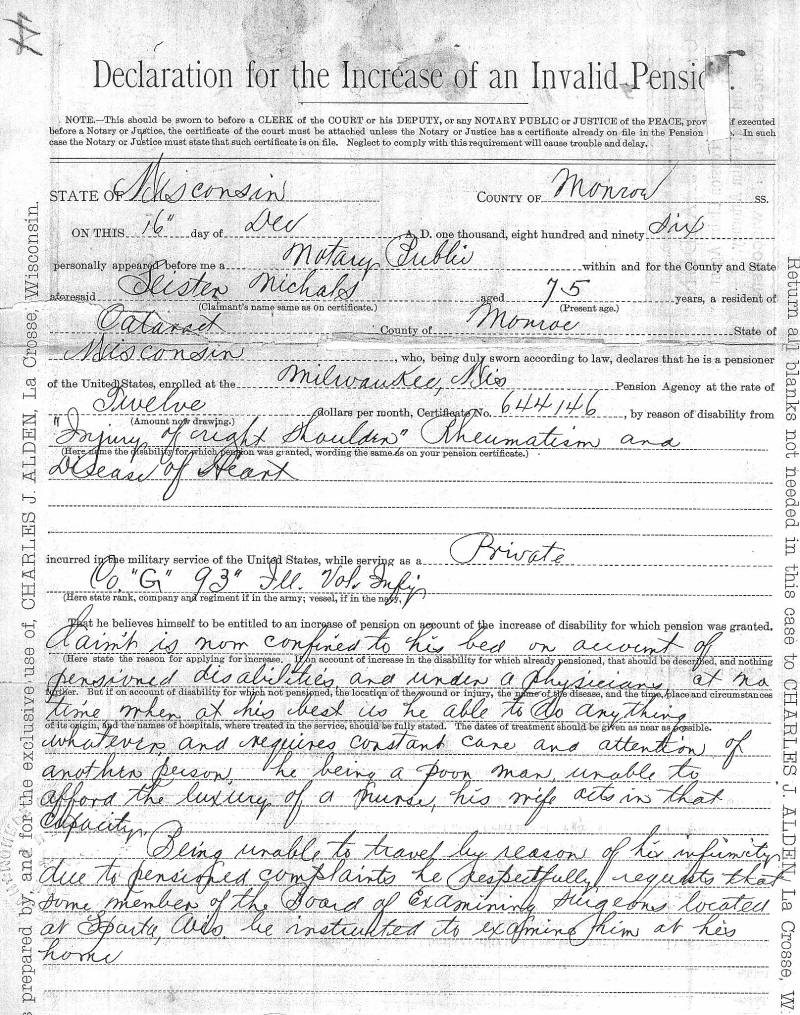 Declaration for the Increase of an Invalid Pension.
NOTE.—This should be sworn to before a CLERK of the COURT or his DEPUTY, or any NOTARY PUBLIC or JUSTICE of the PEACE, prov f executed
before a Notary or Justice, the certificate of the court must be attached unless the Notary or Justice has a certificate already on file in the Pension . In such
case the Notary or Justice must state that such certificate is on file. Neglect to comply with this requirement will cause trouble and delay.
STATE OF Wisconsin COUNTY OF Monroe ss.
ON THIS 16" day of Dec A. D. one thousand, eight hundred and ninety six
personally appeared before me a Notary Public within and for the County and State
aforesaid Nichols aged 75 years, a resident of
(Claimant's name same as on certificate.) (Present age.)
Cataract County of Monroe State of
Wisconsin, who, being duly sworn according to law, declares that he is a pensioner
of the United States, enrolled at the Milwaukee, Wis Pension Agency at the rate of
Twelve dollars per month, Certificate No. 644146, by reason of disability from
(Amount now drawing.)
"Injury of right shoulder" Rheumatism and
(Here name the disability for which pension was granted, wording the same as on your pension certificate.)
Disease of Heart
incurred in the military service of the United States, while serving as a Private
Co. "G" 93" Ill. Vol. Infy
(Here state rank, company and regiment if in the army; vessel, if in the navy,
That he believes himself to be entitled to an increase of pension on account of the increase of disability for which pension was granted.
Claim't is now confined to his bed on account of
(Here state the reason for applying for increase. If on account of increase in the disability for which already pensioned, that should be described, and nothing
pensioned disabilities and under a physicians, at no
further. But if on account of disability for which not pensioned, the location of the wound or injury, the name of the disease, and the time, place and circumstances
time when at his best is he able to do anything
of its origin, and the names of hospitals, where treated in the service, should be fully stated. The dates of treatment should be given as near as possible.
whatever, and requires constant care and attention of
another person, he being a poor man, unable to
afford the luxury of a nurse, his wife acts in that
capacity.
Being unable to travel by reason of his infirmity
due to pensioned complaints he respectfully requests that
some member of the Board of Examining Surgeons located
at Sparta, Wis. be instructed to examine him at his
home
s prepared by, and for the exclusive use of, CHARLES J. ALDEN, La Crosse, Wisconsin.
Return all blanks not needed in this case to CHARLES J. ALDEN, La Crosse, W